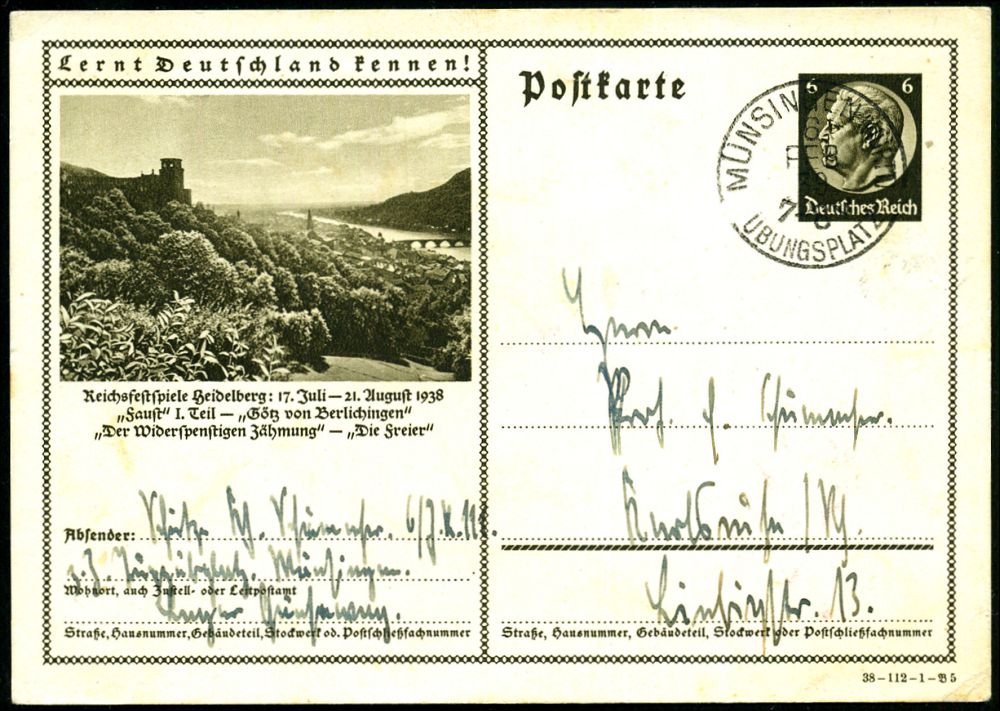 Lernt Deutschland kennen!
Reichsfestspiele Heidelberg: 17. Juli — 21. August 1938
„Faust“ I. Teil — „Götz von Berlichingen“
„Der Widerspenstigen Zähmung“ — „Die Freier“
Absender: Schütze
z. Z. Münsingen.
Wohnort, auch Zustell- oder Leitpostamt
Lager
Straße, Hausnummer, Gebäudeteil, Stockwerk od. Postschließfachnummer
Postkarte
6 6
Deutsches Reich
MÜNSINGEN
ÜBUNGSPLATZ
Herrn
Prof.
Karlsruhe
13.
Straße, Hausnummer, Gebäudeteil, Stockwerk oder Postschließfachnummer
38–112–1–B5